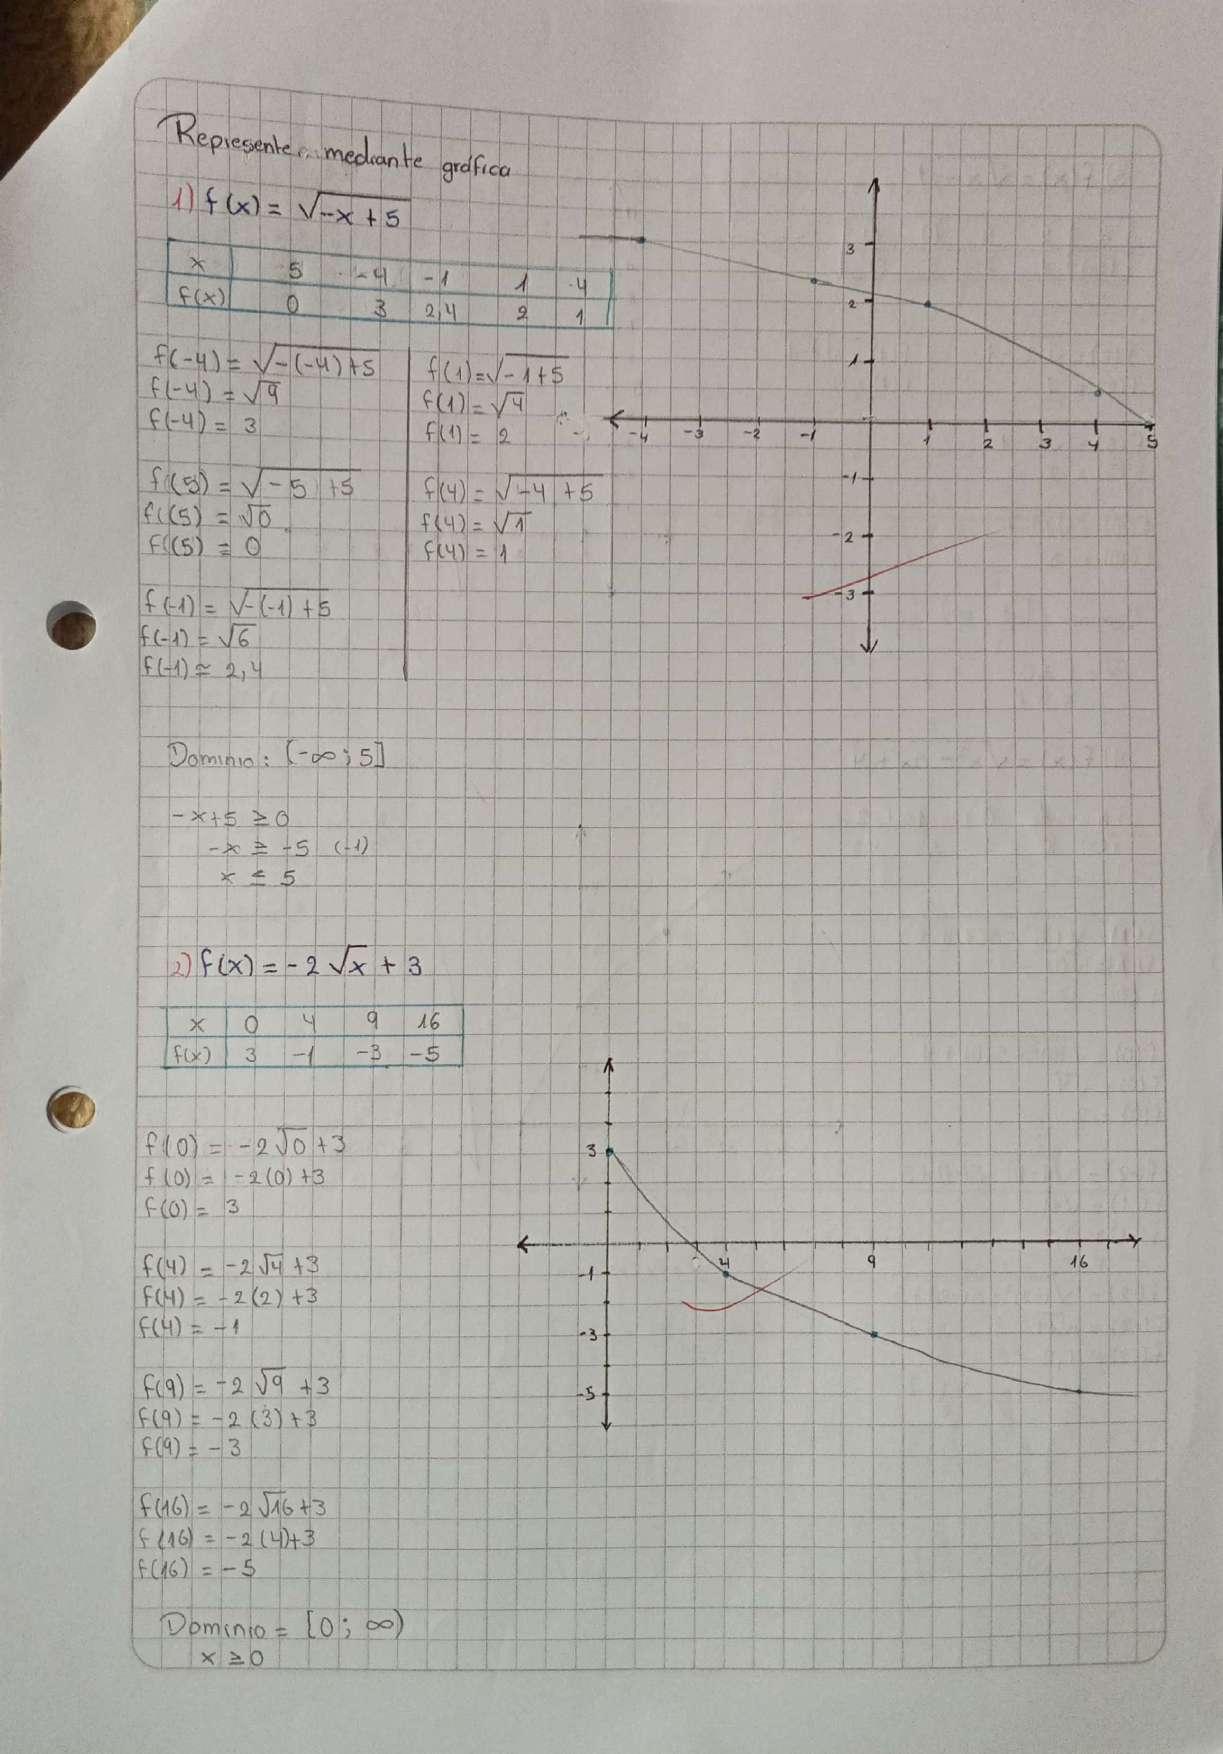 Represente mediante gráfica
1) f(x) = √-x + 5
x 5 -4 -1 1 4
f(x) 0 3 2,4 2 1
f(-4) = √-(-4)+5
f(-4) = √9
f(-4) = 3
f(5) = √-5 +5
f(5) = √0
f(5) = 0
f(-1) = √-(-1)+5
f(-1) = √6
f(-1) ≃ 2,4
f(1) = √-1+5
f(1) = √4
f(1) = 2
f(4) = √-4 +5
f(4) = √1
f(4) = 1
3
2
1
-4 -3 -2 -1 1 2 3 4 5
-1
-2
-3
Dominio: [-∞; 5]
-x+5 ≥ 0
-x ≥ -5 (-1)
x ≤ 5
2) f(x) = -2√x + 3
x 0 4 9 16
f(x) 3 -1 -3 -5
f(0) = -2√0 +3
f(0) = -2(0)+3
f(0) = 3
f(4) = -2√4 +3
f(4) = -2(2)+3
f(4) = -1
f(9) = -2√9 +3
f(9) = -2(3)+3
f(9) = -3
f(16) = -2√16+3
f(16) = -2(4)+3
f(16) = -5
3
4 9 16
-1
-3
-5
Dominio = [0; ∞)
x ≥ 0